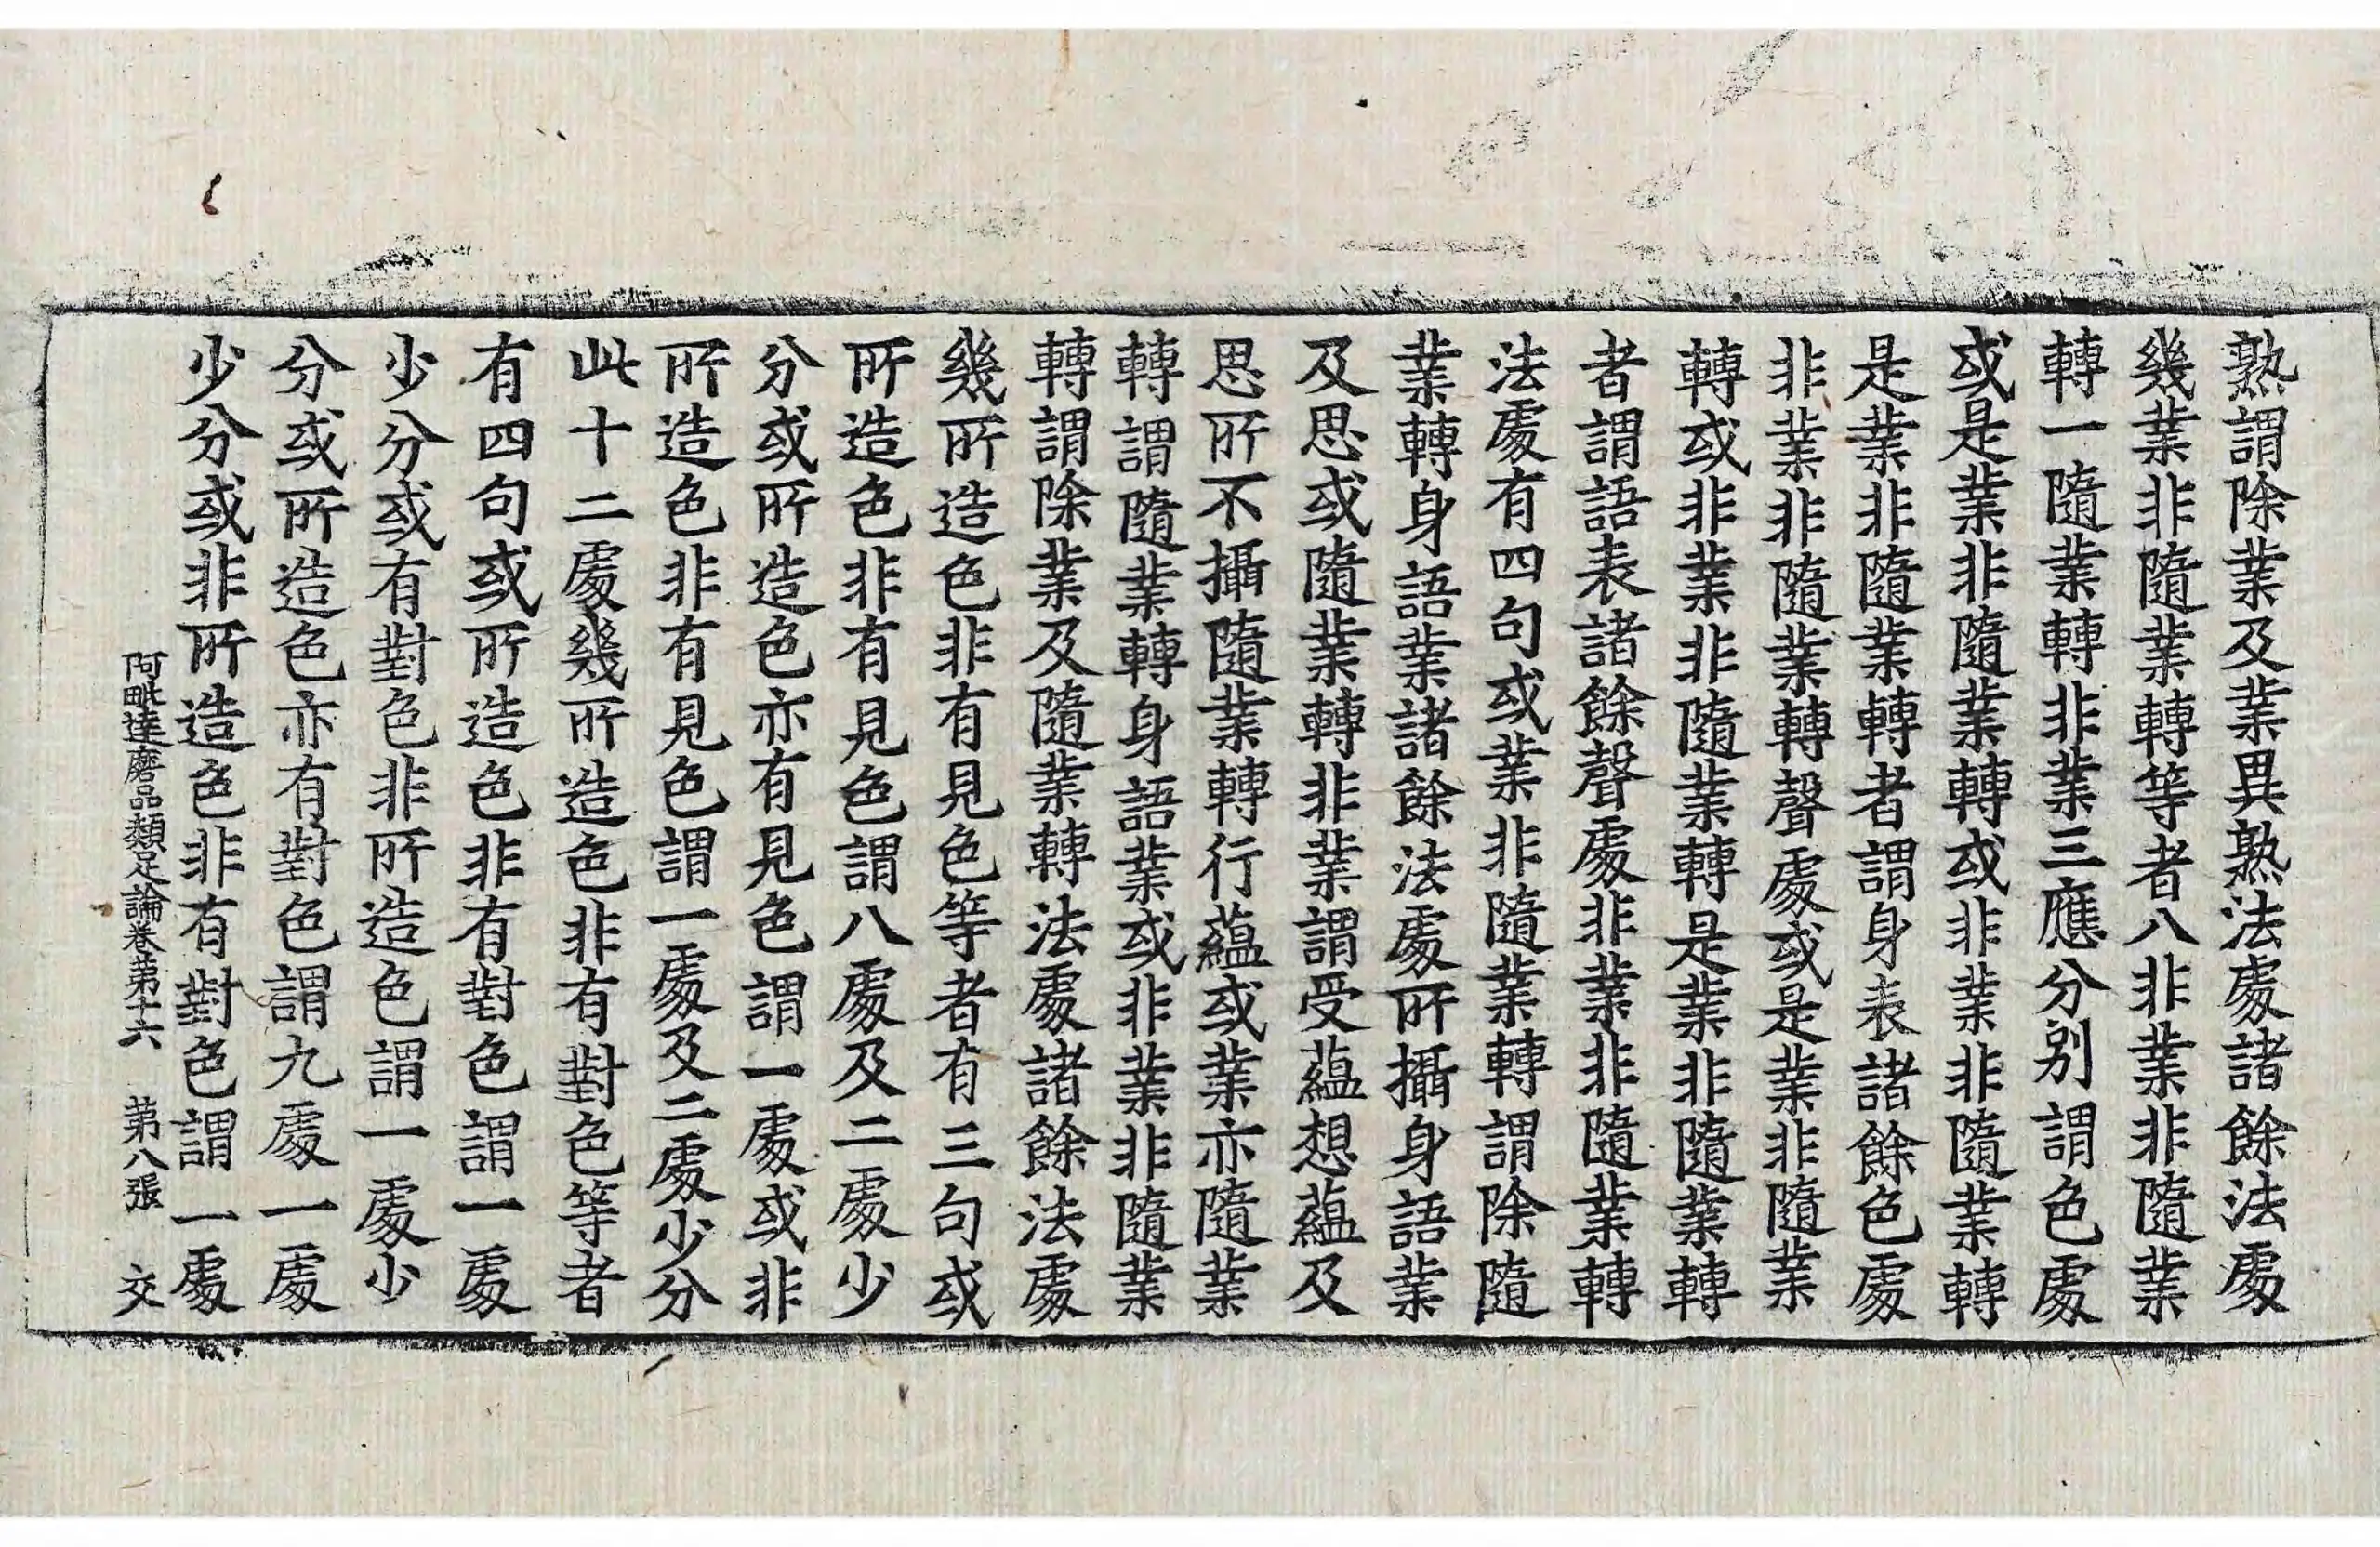 熟謂除業及業異熟法處諸餘法處
幾業非隨業轉等者八非業非隨業
轉一隨業轉非業三應分別謂色處
或是業非隨業轉或非業非隨業轉
是業非隨業轉者謂身表諸餘色處
非業非隨業轉聲處或是業非隨業
轉或非業非隨業轉是業非隨業轉
者謂語表諸餘聲處非業非隨業轉
法處有四句或業非隨業轉謂除隨
業轉身語業諸餘法處所攝身語業
及思或隨業轉非業謂受蘊想蘊及
思所不攝隨業轉行蘊或業亦隨業
轉謂隨業轉身語業或非業非隨業
轉謂除業及隨業轉法處諸餘法處
幾所造色非有見色等者有三句或
所造色非有見色謂八處及二處少
分或所造色亦有見色謂一處或非
所造色非有見色謂一處及二處少分
此十二處幾所造色非有對色等者
有四句或所造色非有對色謂一處
少分或有對色非所造色謂一處少
分或所造色亦有對色謂九處一處
少分或非所造色非有對色謂一處
阿毗達磨品類足論卷第十六 第八張 交